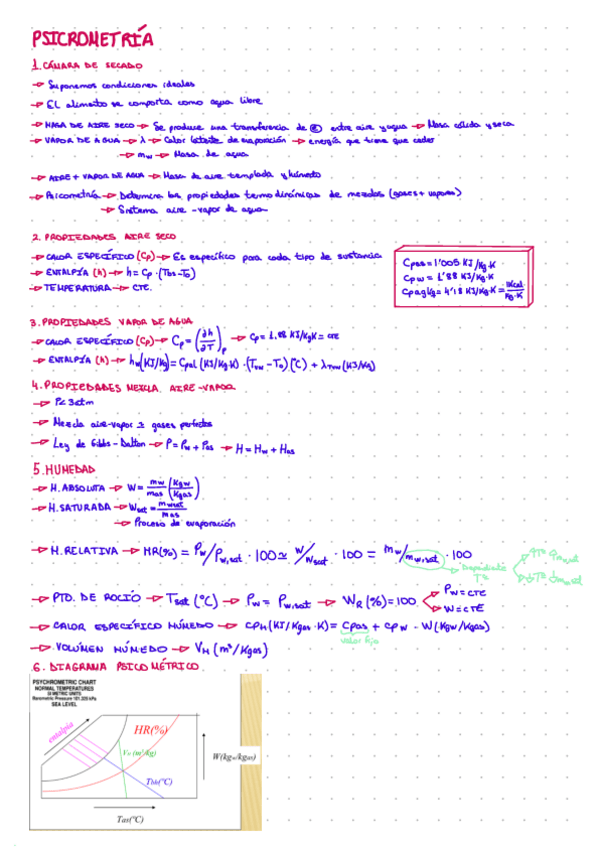 PSICROMETRÍA
1. CÁMARA DE SECADO
→ Suponemos condiciones ideales
→ El alimento se comporta como agua libre
→ MASA DE AIRE SECO → Se produce una transferencia de Ⓔ entre aire y agua → Masa cálida y seca
→ VAPOR DE AGUA → λ → Calor latente de evaporación → energía que tiene que ceder
→ mw → Masa de agua
→ AIRE + VAPOR DE AGUA → Masa de aire templada y húmedo
→ Psicometría → Determina las propiedades termodinámicas de mezclas (gases + vapores)
→ Sistema aire-vapor de agua
2. PROPIEDADES AIRE SECO
→ CALOR ESPECÍFICO (Cp) → Es específico para cada tipo de sustancia
→ ENTALPÍA (h) → h = Cp · (Tbs - To)
→ TEMPERATURA → CTE.
Cpas = 1'005 KJ/Kg·K
Cpw = 1'88 KJ/Kg·K
Cpaglíq = 4'18 KJ/Kg·K = 1Kcal/Kg·K
3. PROPIEDADES VAPOR DE AGUA
→ CALOR ESPECÍFICO (Cp) → Cp = (∂h/∂T)p → Cp = 1,88 KJ/KgK = cte
→ ENTALPÍA (h) → hw (KJ/Kg) = Cpal (KJ/Kg·K) · (Trw - To) (°C) + λTrw (KJ/Kg)
4. PROPIEDADES MEZCLA AIRE-VAPOR
→ P < 3atm
→ Mezcla aire-vapor ≃ gases perfectos
→ Ley de Gibbs-Dalton → P = Pw + Pas → H = Hw + Has
5. HUMEDAD
→ H. ABSOLUTA → W = mw/mas (Kgw/Kgas)
→ H. SATURADA → Wsat = mwsat/mas
→ Proceso de evaporación
→ H. RELATIVA → HR(%) = Pw/Pw,sat · 100 ≃ W/Wsat · 100 = mw/mw,sat · 100
→ PTO. DE ROCÍO → Tsat (°C) → Pw = Pw,sat → WR (%) = 100
Pw = CTE
W = CTE
→ CALOR ESPECÍFICO HÚMEDO → CPH (KJ/Kgas·K) = Cpas + cpw · W (Kgw/Kgas)
valor fijo
→ VOLÚMEN HÚMEDO → VH (m³/Kgas)
6. DIAGRAMA PSICOMÉTRICO
PSYCHROMETRIC CHART
NORMAL TEMPERATURES
SI METRIC UNITS
Barometric Pressure 101.325 kPa
SEA LEVEL
entalpía
HR(%)
VH (m³/kg)
W(kgw/kgas)
Tbh(°C)
Tas(°C)